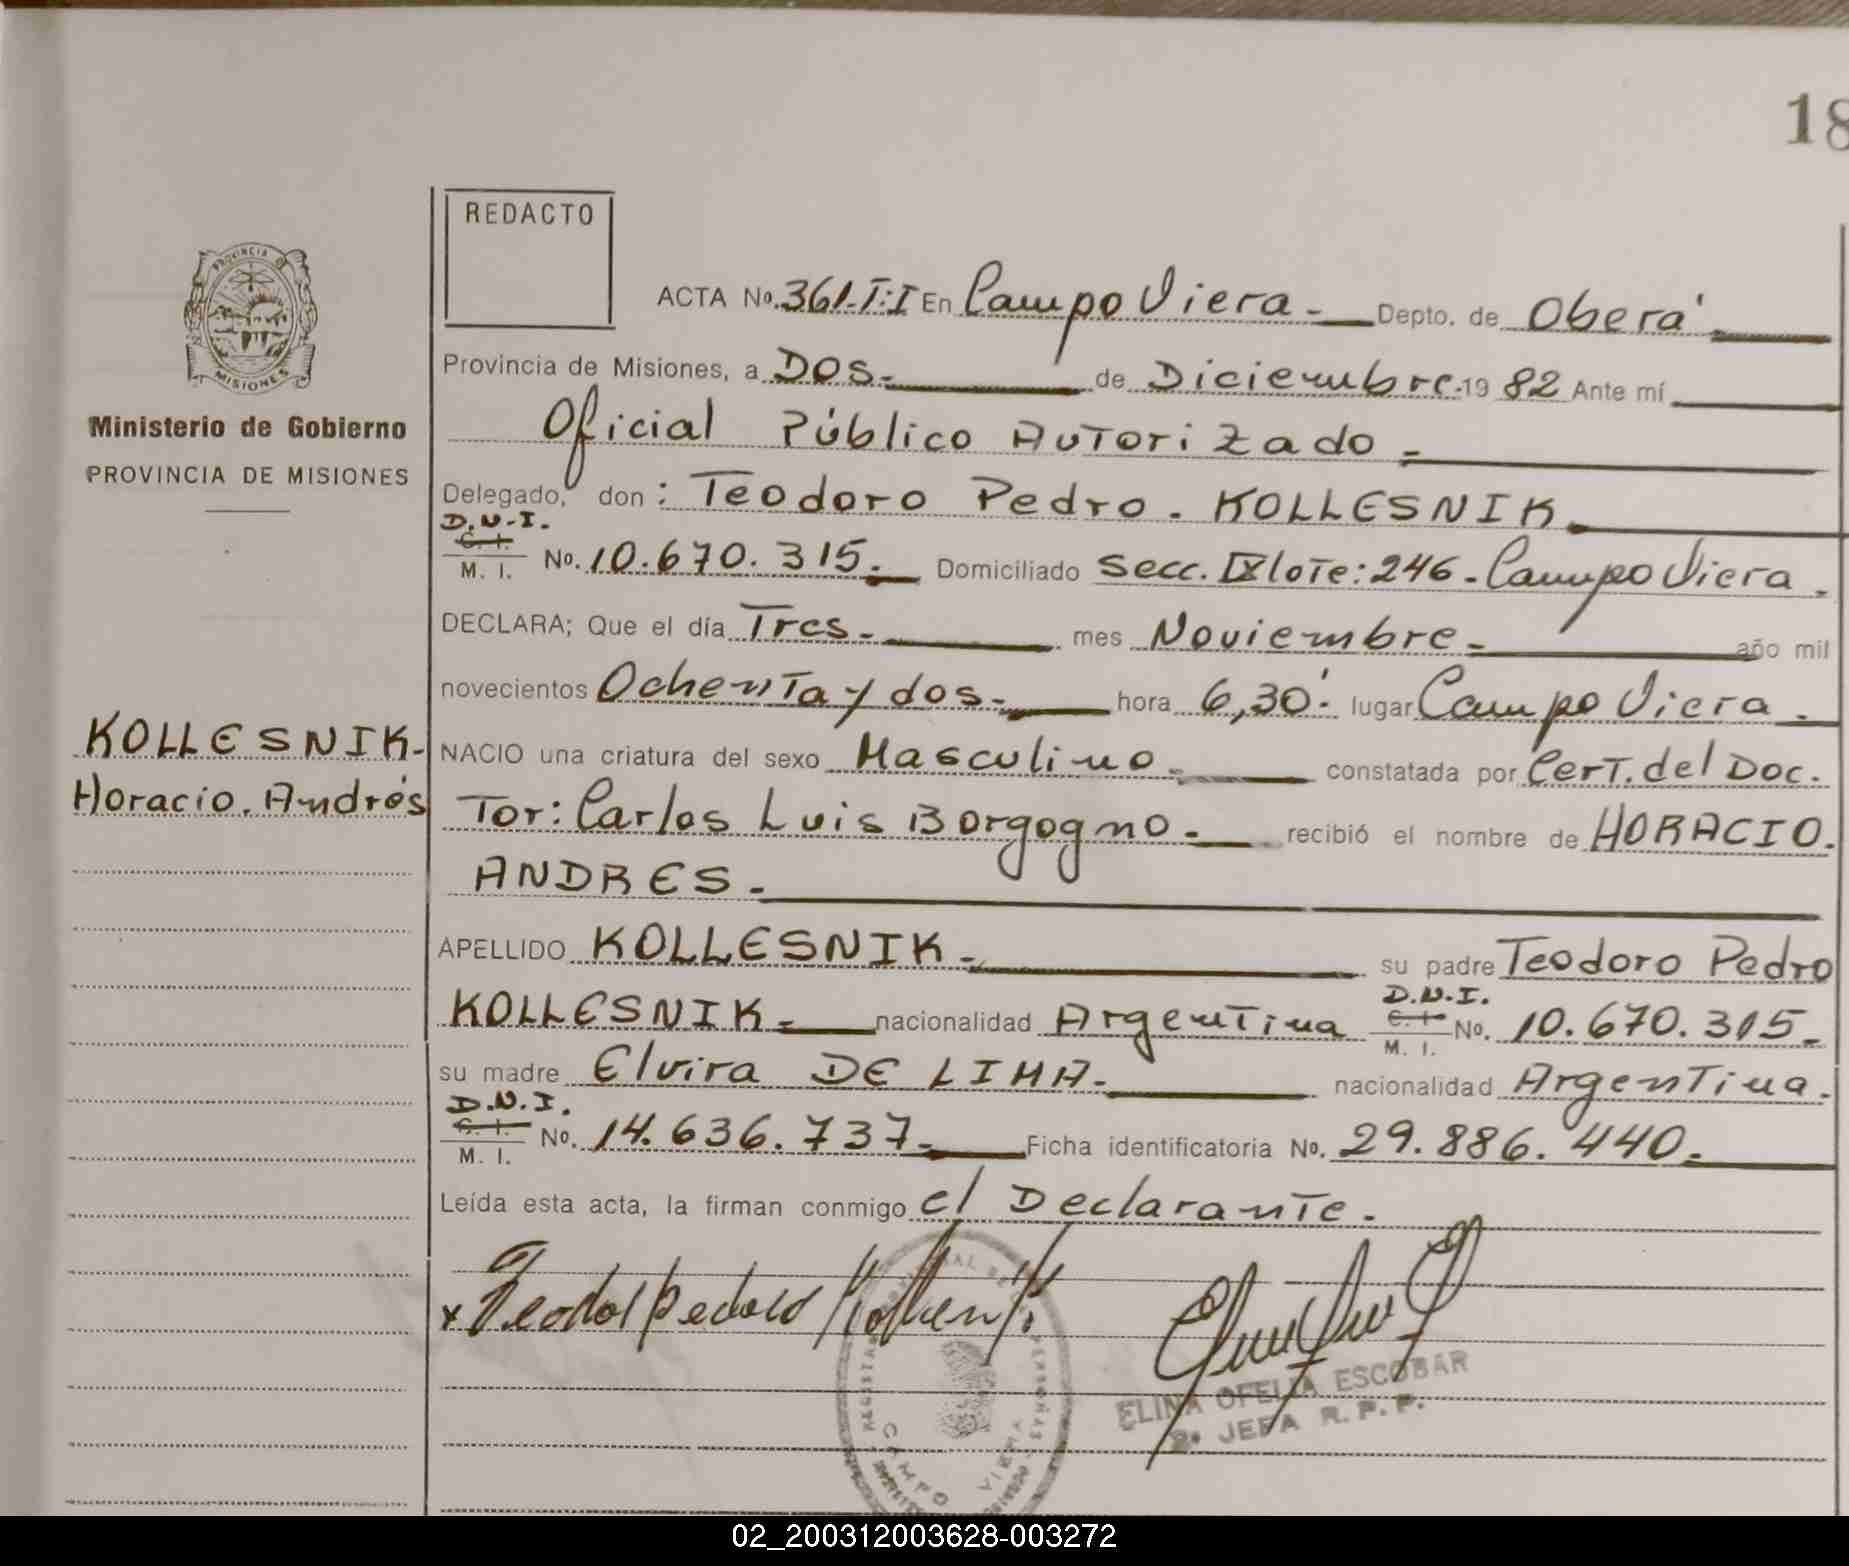 18
REDACTO
PROVINCIA D
MISIONES
Ministerio de Gobierno
PROVINCIA DE MISIONES
KOLLESNIK-
Horacio. Andrés
ACTA No. 361-T:I En Campo Viera - Depto. de Oberá
Provincia de Misiones, a DOS - de Diciembre - 19 82 Ante mí
Oficial Público Autorizado -
Delegado, don : Teodoro Pedro - KOLLESNIK
D.N.I.
C. I.
M. I. No. 10.670.315. Domiciliado Secc. IX lote: 246 - Campo Viera -
DECLARA; Que el día Tres - mes Noviembre - año mil
novecientos Ochenta y dos - hora 6,30' - lugar Campo Viera -
NACIO una criatura del sexo Masculino - constatada por Cert. del Doc-
Tor: Carlos Luis Borgogno - recibió el nombre de HORACIO.
ANDRES -
APELLIDO KOLLESNIK - su padre Teodoro Pedro
KOLLESNIK - nacionalidad Argentina D.N.I. C. I. M. I. No. 10.670.315 -
su madre Elvira DE LIMA - nacionalidad Argentina -
D.N.I.
C. I.
M. I. No. 14.636.737 - Ficha identificatoria No. 29.886.440 -
Leída esta acta, la firman conmigo el Declarante -
x Teodor pedro
ELINA OFELIA ESCOBAR
JEFA R. P. P.
CAMPO VIERA
02_200312003628-003272